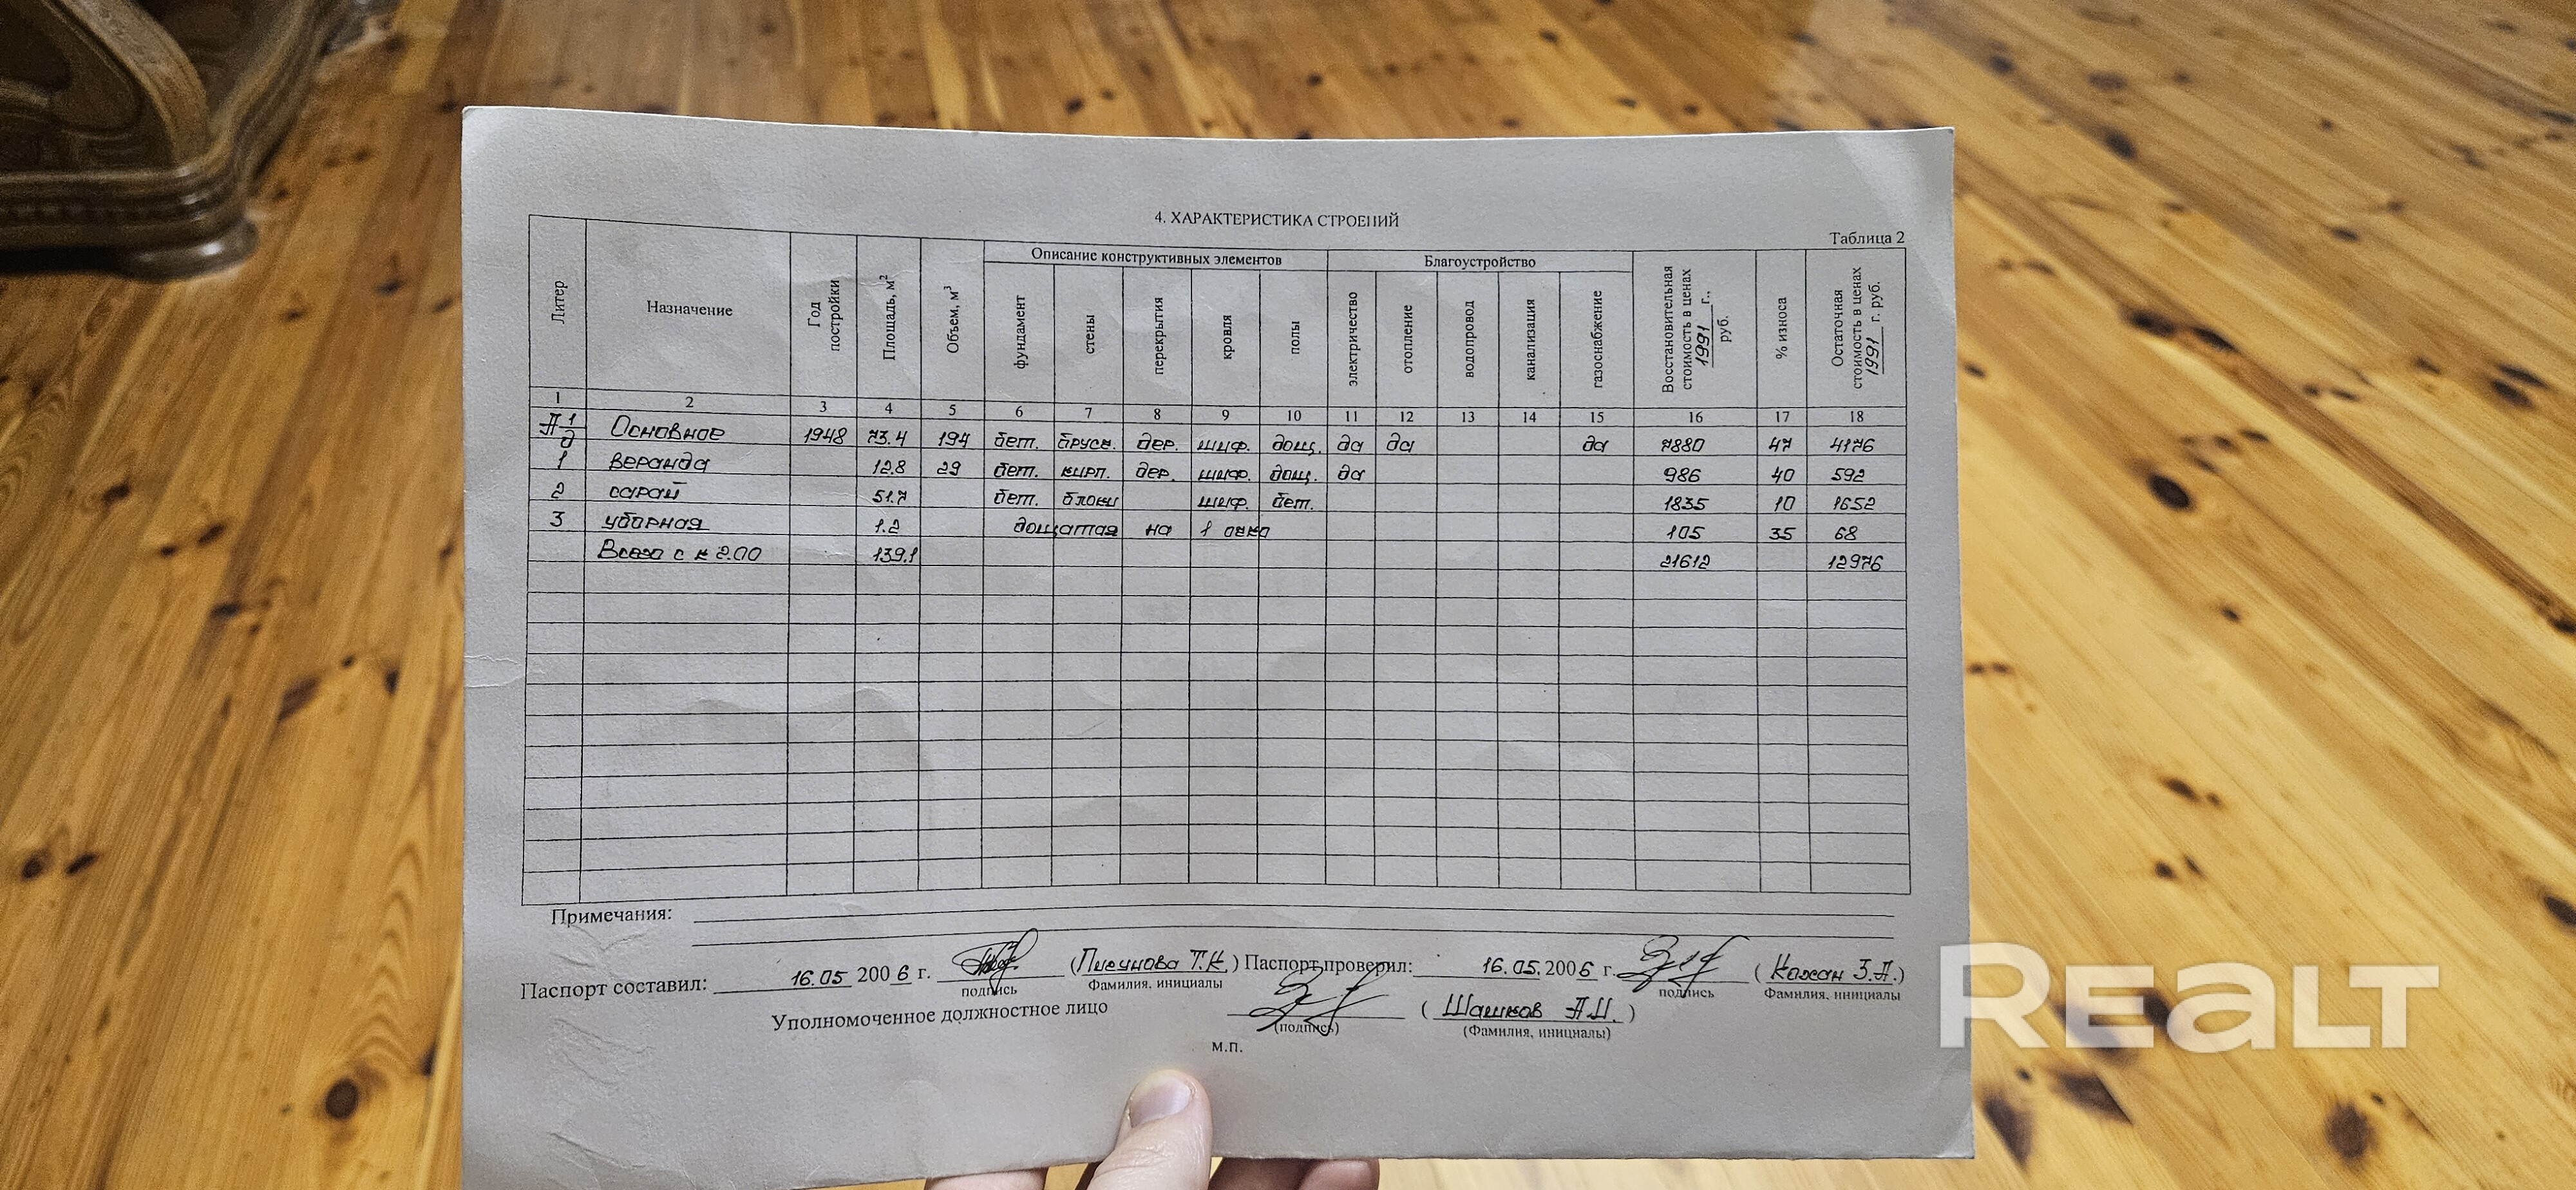 4. ХАРАКТЕРИСТИКА СТРОЕНИЙ
Таблица 2
Литер Назначение Год постройки Площадь, м² Объем, м³ Описание конструктивных элементов Благоустройство Восстановительная стоимость в ценах 1991 г., руб. % износа Остаточная стоимость в ценах 1991 г. руб.
фундамент стены перекрытия кровля полы электричество отопление водопровод канализация газоснабжение
1 2 3 4 5 6 7 8 9 10 11 12 13 14 15 16 17 18
А 1/д Основное 1948 73.4 197 бет. брусч. дер. шиф. дощ. да да да 7880 47 4176
1 веранда 12.8 29 бет. кирп. дер. шиф. дощ. да 986 40 592
2 сарай 51.7 бет. блоки шиф. бет. 1835 10 1652
3 уборная 1.2 дощатая на 1 очко 105 35 68
Всего с к 2.00 139.1 21612 12976
Примечания:
Паспорт составил: 16.05 2006 г. (Пигунова Т.К.) Паспорт проверил: 16.05. 2006 г. (Кохан З.А.)
подпись Фамилия, инициалы подпись Фамилия, инициалы
Уполномоченное должностное лицо (Шашков А.И.)
(подпись) (Фамилия, инициалы)
м.п.
REALT